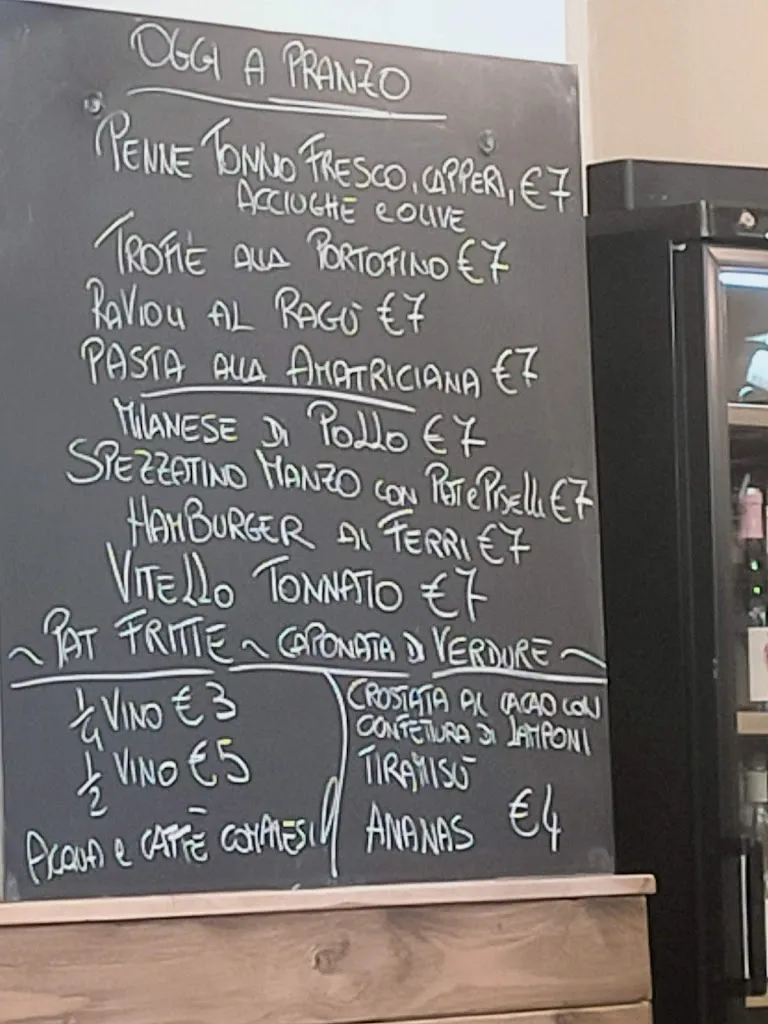 OGGI A PRANZO
PENNE TONNO FRESCO, CAPPERI, €7
ACCIUGHE e OLIVE
TROFIE ALLA PORTOFINO €7
RAVIOLI AL RAGÙ €7
PASTA ALLA AMATRICIANA €7
MILANESE DI POLLO €7
SPEZZATINO MANZO CON PAT e PISELLI €7
HAMBURGER AI FERRI €7
VITELLO TONNATO €7
~ PAT FRITTE ~ CAPONATA DI VERDURE ~
1/4 VINO €3
1/2 VINO €5
ACQUA e CAFFÈ COMPRESI
CROSTATA AL CACAO CON
CONFETTURA DI LAMPONI
TIRAMISÙ
ANANAS €4